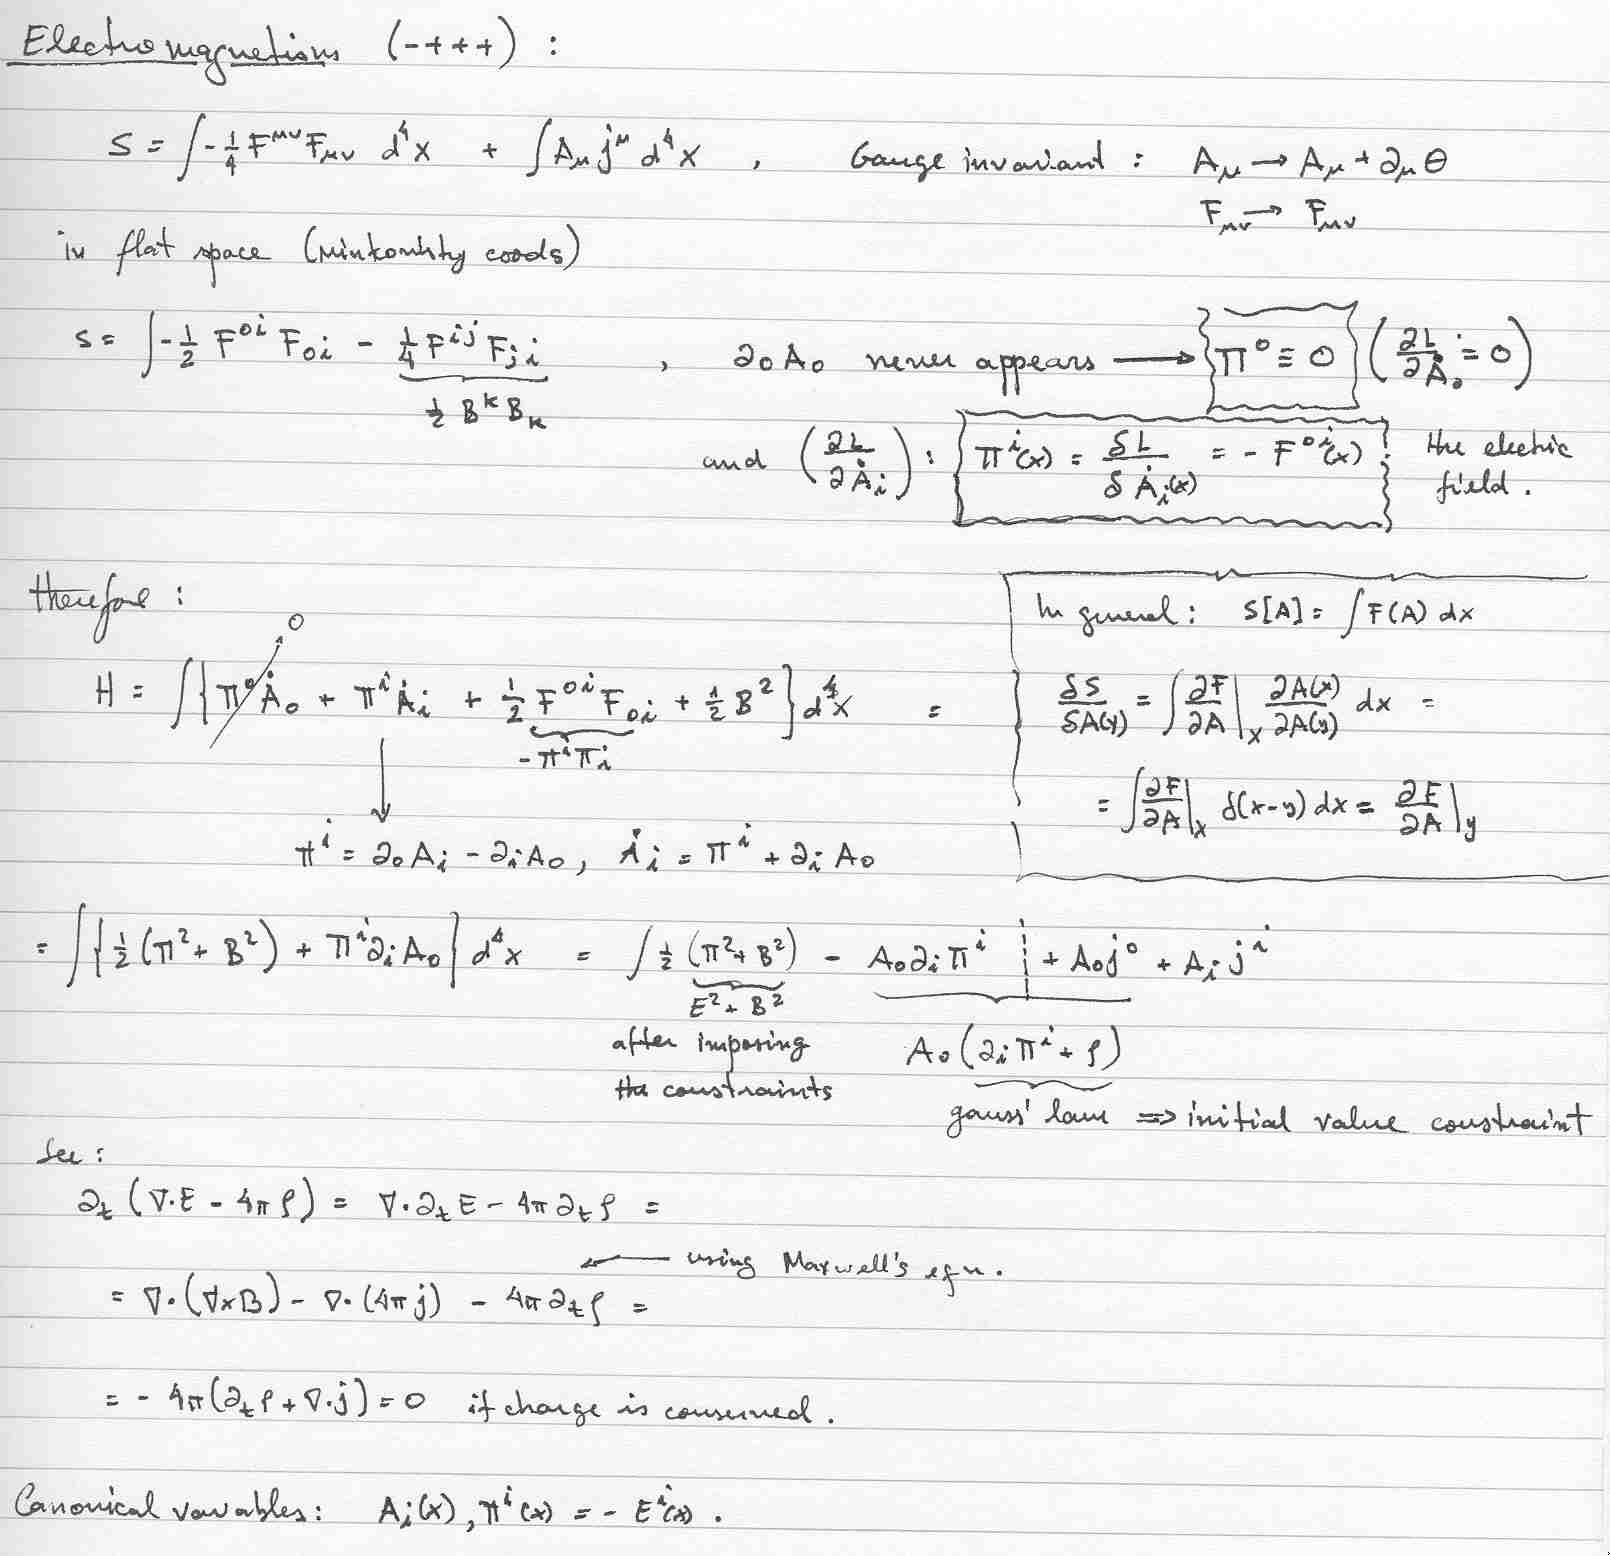 Electromagnetism (-+++) :
S = ∫ -1/4 F^{μν} F_{μν} d⁴x + ∫ A_μ j^μ d⁴x , Gauge invariant : A_μ → A_μ + ∂_μ θ
F_{μν} → F_{μν}
in flat space (Minkowsky coods)
S = ∫ -1/2 F^{0i} F_{0i} - 1/4 F^{ij} F_{ji} , ∂₀A₀ never appears → Π⁰ ≡ 0 (∂L/∂Ȧ₀ = 0)
1/2 B^k B_k
and (∂L/∂Ȧ_i) : Π^i(x) = δL/δȦ_i(x) = - F^{0i}(x) the electric field.
therefore :
0
H = ∫ { Π⁰Ȧ₀ + Π^i Ȧ_i + 1/2 F^{0i} F_{0i} + 1/2 B² } d⁴x =
-Π^i Π_i
π^i = ∂₀A_i - ∂_iA₀, Ȧ_i = Π^i + ∂_i A₀
In general : S[A] = ∫ F(A) dx
δS/δA(y) = ∫ ∂F/∂A|_x ∂A(x)/∂A(y) dx =
= ∫ ∂F/∂A|_x δ(x-y) dx = ∂F/∂A|_y
= ∫ { 1/2 (Π² + B²) + Π^i ∂_i A₀ } d⁴x = ∫ 1/2 (Π² + B²) - A₀ ∂_i Π^i + A₀ j⁰ + A_i j^i
E² + B²
after imposing
the constraints
A₀ (∂_i Π^i + ρ)
gauss' law ⇒ initial value constraint
See :
∂_t (∇·E - 4πρ) = ∇·∂_t E - 4π ∂_t ρ =
← using Maxwell's eqn.
= ∇·(∇×B) - ∇·(4πj) - 4π ∂_t ρ =
= - 4π(∂_t ρ + ∇·j) = 0 if charge is conserved.
Canonical variables : A_i(x), π^i(x) = - E^i(x) .